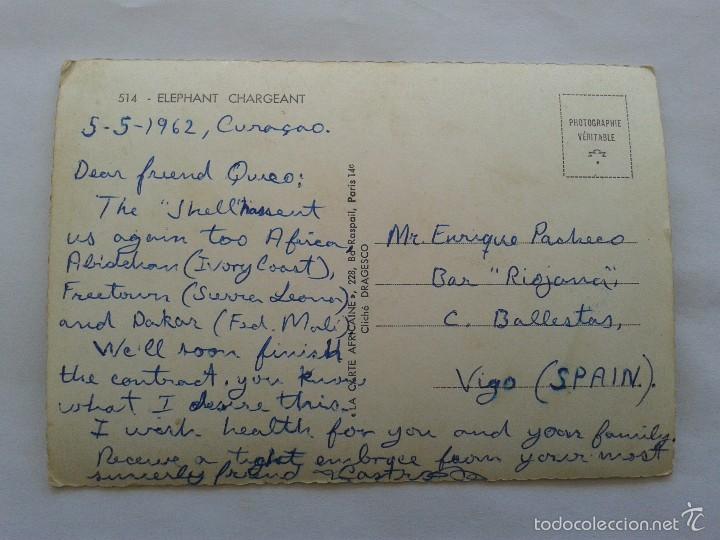 514 - ELEPHANT CHARGEANT
5-5-1962, Curaçao.
Dear friend Quico:
The "Shell" has sent
us again too Africa,
Abidchan (Ivory Coast),
Freetown (Sierra Leona)
and Dakar (Fed. Mali).
We'll soon finish
the contract, you know
what I desire this.
I wish health for you and your family.
Receive a tight embrace from your most
sincerly friend Castro
«LA CARTE AFRICAINE», 228, Bd Raspail, Paris 14e
Cliché DRAGESCO
PHOTOGRAPHIE
VÉRITABLE
Mr. Enrique Pacheco
Bar "Riojana",
C. Ballestas,
Vigo (SPAIN).
todocoleccion.net